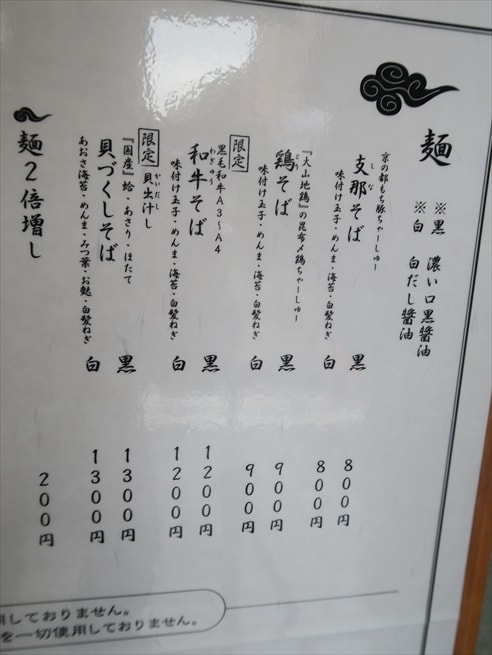 麺
※黒 濃い口黒醤油
※白 白だし醤油
京の都もち豚ちゃーしゅー
支那そば
しな
味付け玉子・めんま・海苔・白髪ねぎ
黒 800円
白 800円
『大山地鶏』の昆布〆鶏ちゃーしゅー
鶏そば
とり
味付け玉子・めんま・海苔・白髪ねぎ
黒 900円
白 900円
限定
黒毛和牛A3〜A4
和牛そば
わぎゅう
味付け玉子・めんま・海苔・白髪ねぎ
黒 1200円
白 1200円
限定
貝出汁し
かいだし
『国産』蛤・あさり・ほたて
貝づくしそば
あおさ海苔・めんま・みつ葉・お麩・白髪ねぎ
黒 1300円
白 1300円
麺2倍増し
200円
用しておりません。
を一切使用しておりません。